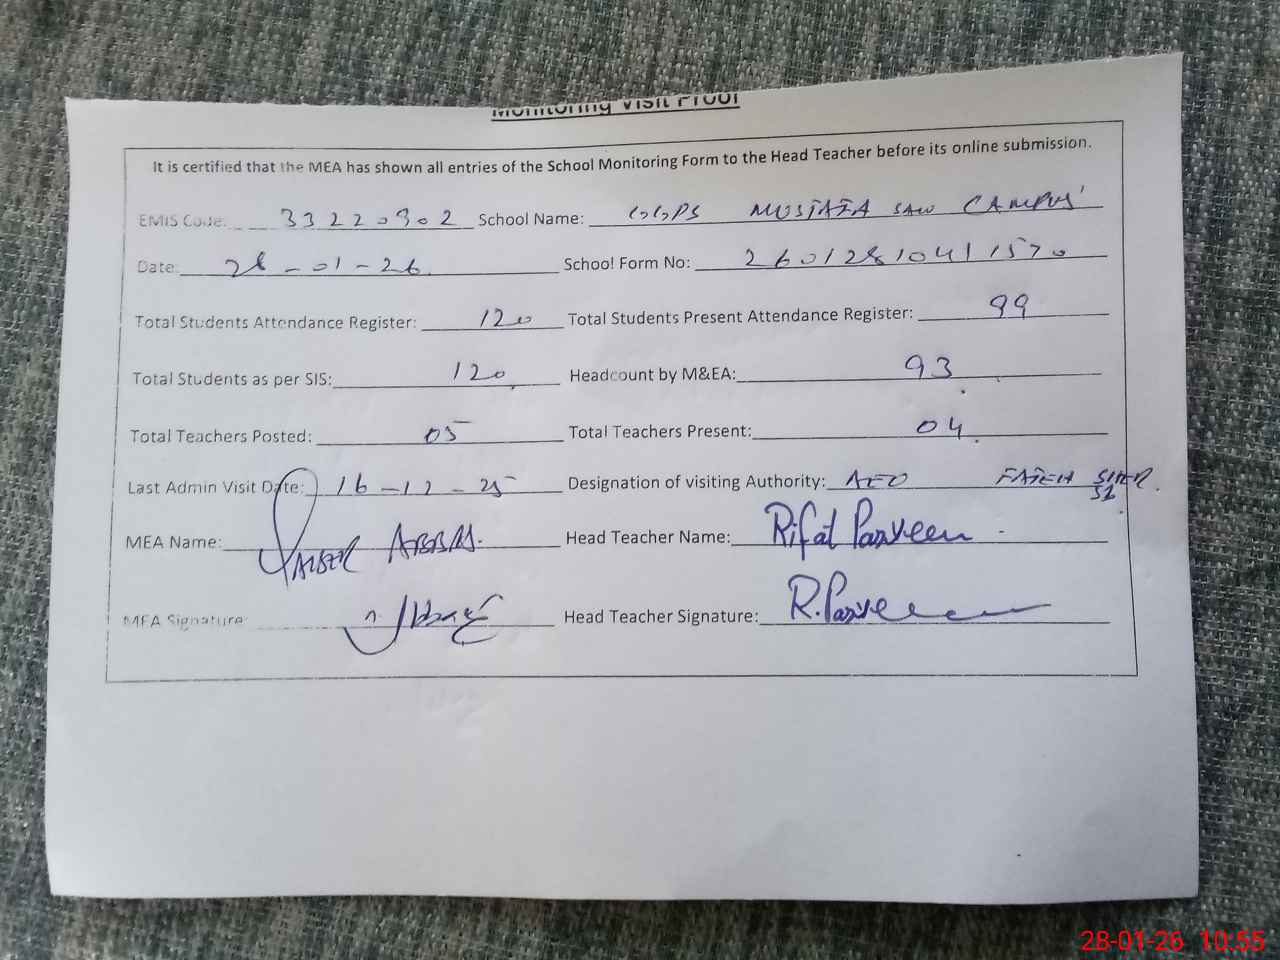 Monitoring Visit Proof
It is certified that the MEA has shown all entries of the School Monitoring Form to the Head Teacher before its online submission.
EMIS Code: 33220302 School Name: GGPS MUSTAFA SAW CAMPUS
Date: 28-01-26 School Form No: 26012810411570
Total Students Attendance Register: 120 Total Students Present Attendance Register: 99
Total Students as per SIS: 120 Headcount by M&EA: 93
Total Teachers Posted: 05 Total Teachers Present: 04
Last Admin Visit Date: 16-12-25 Designation of visiting Authority: AEO FATEH SHER
MEA Name: ABBAS Head Teacher Name: Rifat Parveen
MEA Signature: Head Teacher Signature: R.Parveen
28-01-26 10:55